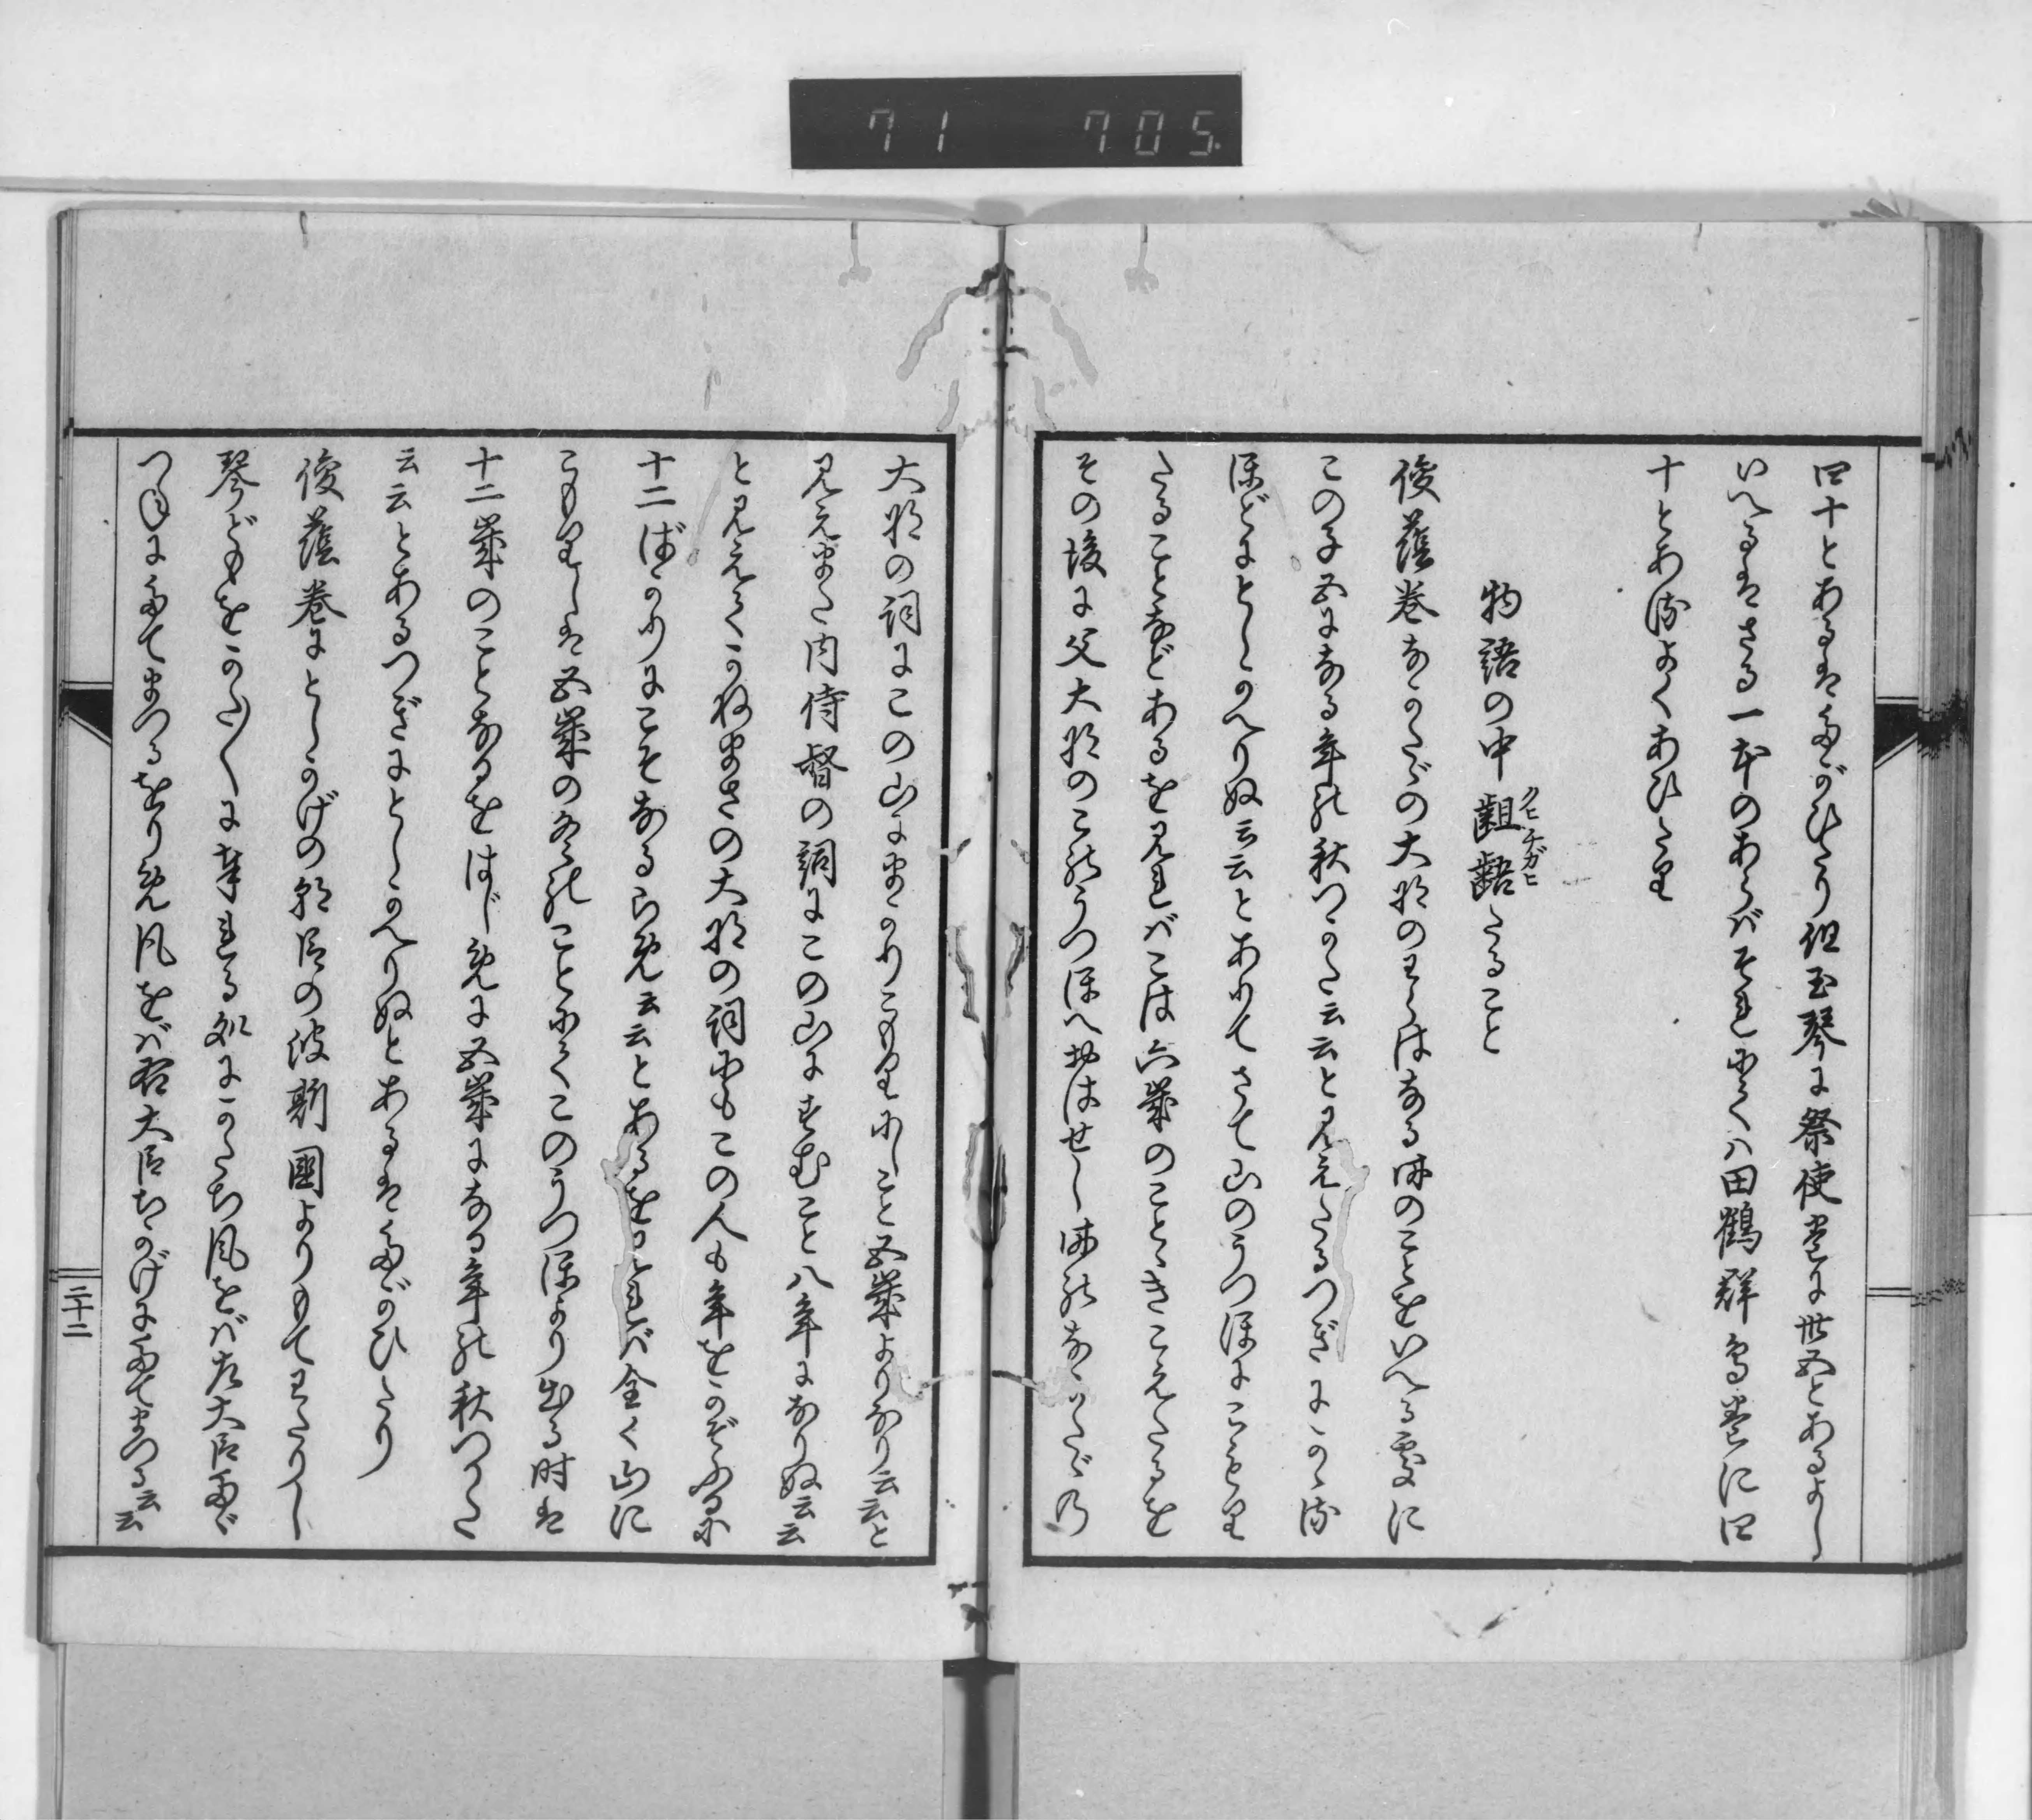 71 705
四十とあるはたがひたり但玉琴に祭使巻に廿五とあるよし
いへるはさる一本のあらばそれにて八田鶴群鳥巻に四
十とあるによくあひたり
物語の中齟齬たることクヒチガヒ
俊蔭巻なかたゞの大将のわらはなる时のことをいへる處に
この子五になる年の秋つかた云云と見えたるつぎにかゝる
ほどにとしかへりぬ云云とありてさて山のうつほにこもり
たることなどあるを見ればこは六歳のことゝきこえたるを
その後に父大将のこのうつほへおはせし时のなかたゞの
大将の詞にこの山にまかりこもりにしこと五歳よりなり云云と
見えまた内侍督の詞にこの山にすむこと八年になりぬ云云
と見えてかねまさの大将の詞にもこの人も年をかぞふるに
十二ばかりにこそなるらめ云云とあるをとれば全く山に
こもりしは五歳の冬のことにてこのうつほより出る时は
十二歳のことなるをはじめに五歳になる年の秋つかた
云云とあるつぎにとしかへりぬとあるはたがひたり
俊蔭巻にとしかげの朝臣の波斯國よりもてわたりし
琴どもをかた〴〵に奉れる処にかたち風をば左大臣たゞ
つねにたてまつるをりめ風をば右大臣ちかげにたてまつる云云
三十二